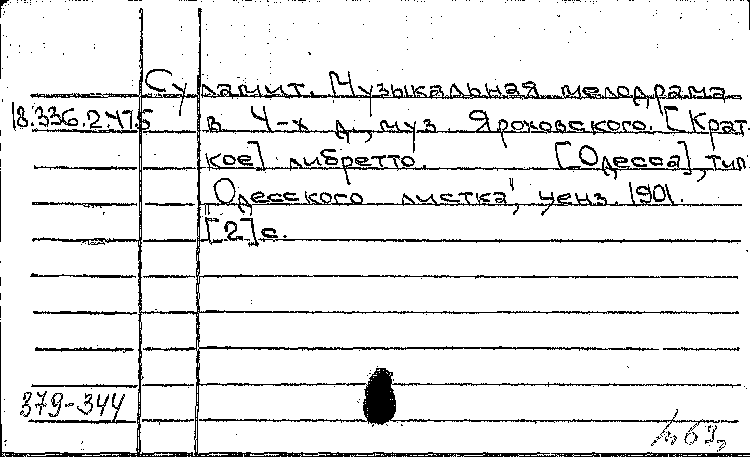 Суламит. Музыкальная мелодрама
18.336.2.475 в 4-х д., муз. Яроховского. [Крат-
кое] либретто. [Одесса], тип.
"Одесского листка", ценз. 1901.
[2] с.
379-344